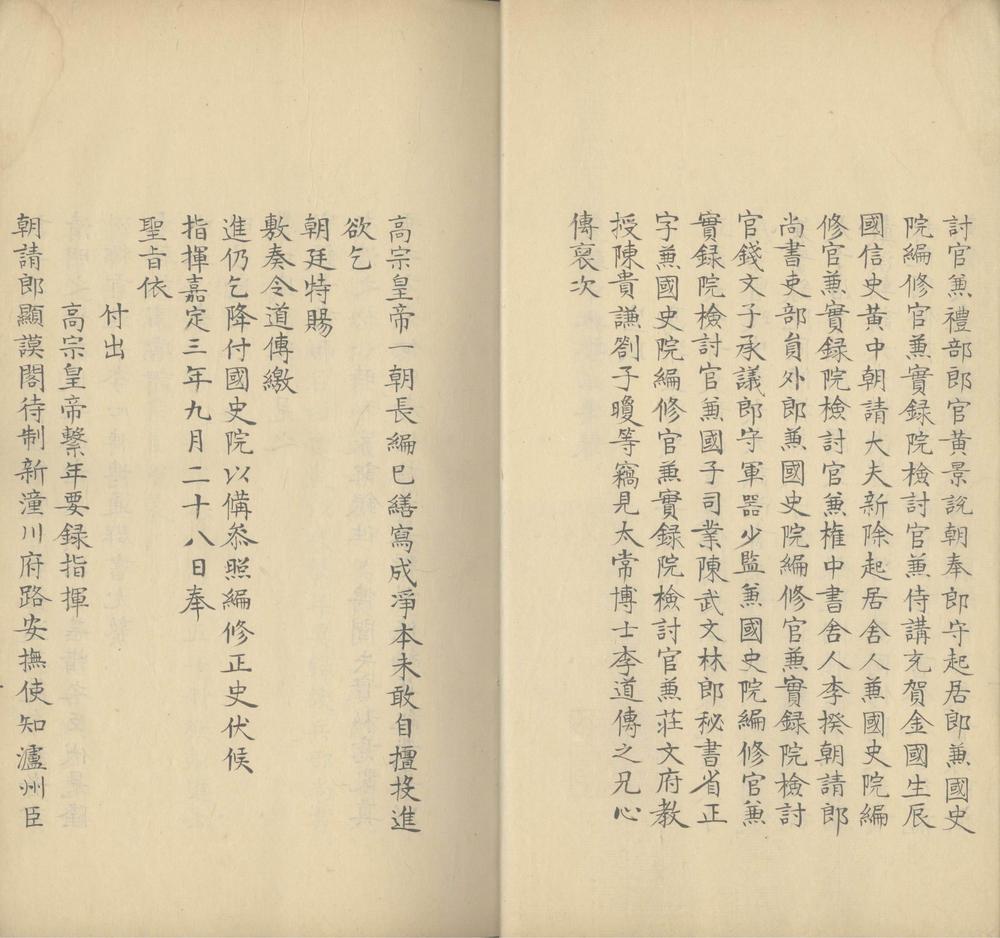 討官兼禮部郎官黃景說朝奉郎守起居郎兼國史
院編修官兼實録院檢討官兼侍講充賀金國生辰
國信史黃中朝請大夫新除起居舍人兼國史院編
修官兼實録院檢討官兼權中書舍人李揆朝請郎
尚書吏部員外郎兼國史院編修官兼實録院檢討
官錢文子承議郎守軍器少監兼國史院編修官兼
實録院檢討官兼國子司業陳武文林郎秘書省正
字兼國史院編修官兼實録院檢討官兼莊文府教
授陳貴謙劄子曖等竊見太常博士李道傳之兄心
傳裒次
高宗皇帝一朝長編已繕寫成淨本未敢自擅投進
欲乞
朝廷特賜
敷奏令道傳繳
進仍乞降付國史院以備叅照編修正史伏候
指揮嘉定三年九月二十八日奉
聖旨依
付出
高宗皇帝繫年要録指揮
朝請郎顯謨閣待制新潼川府路安撫使知瀘州臣